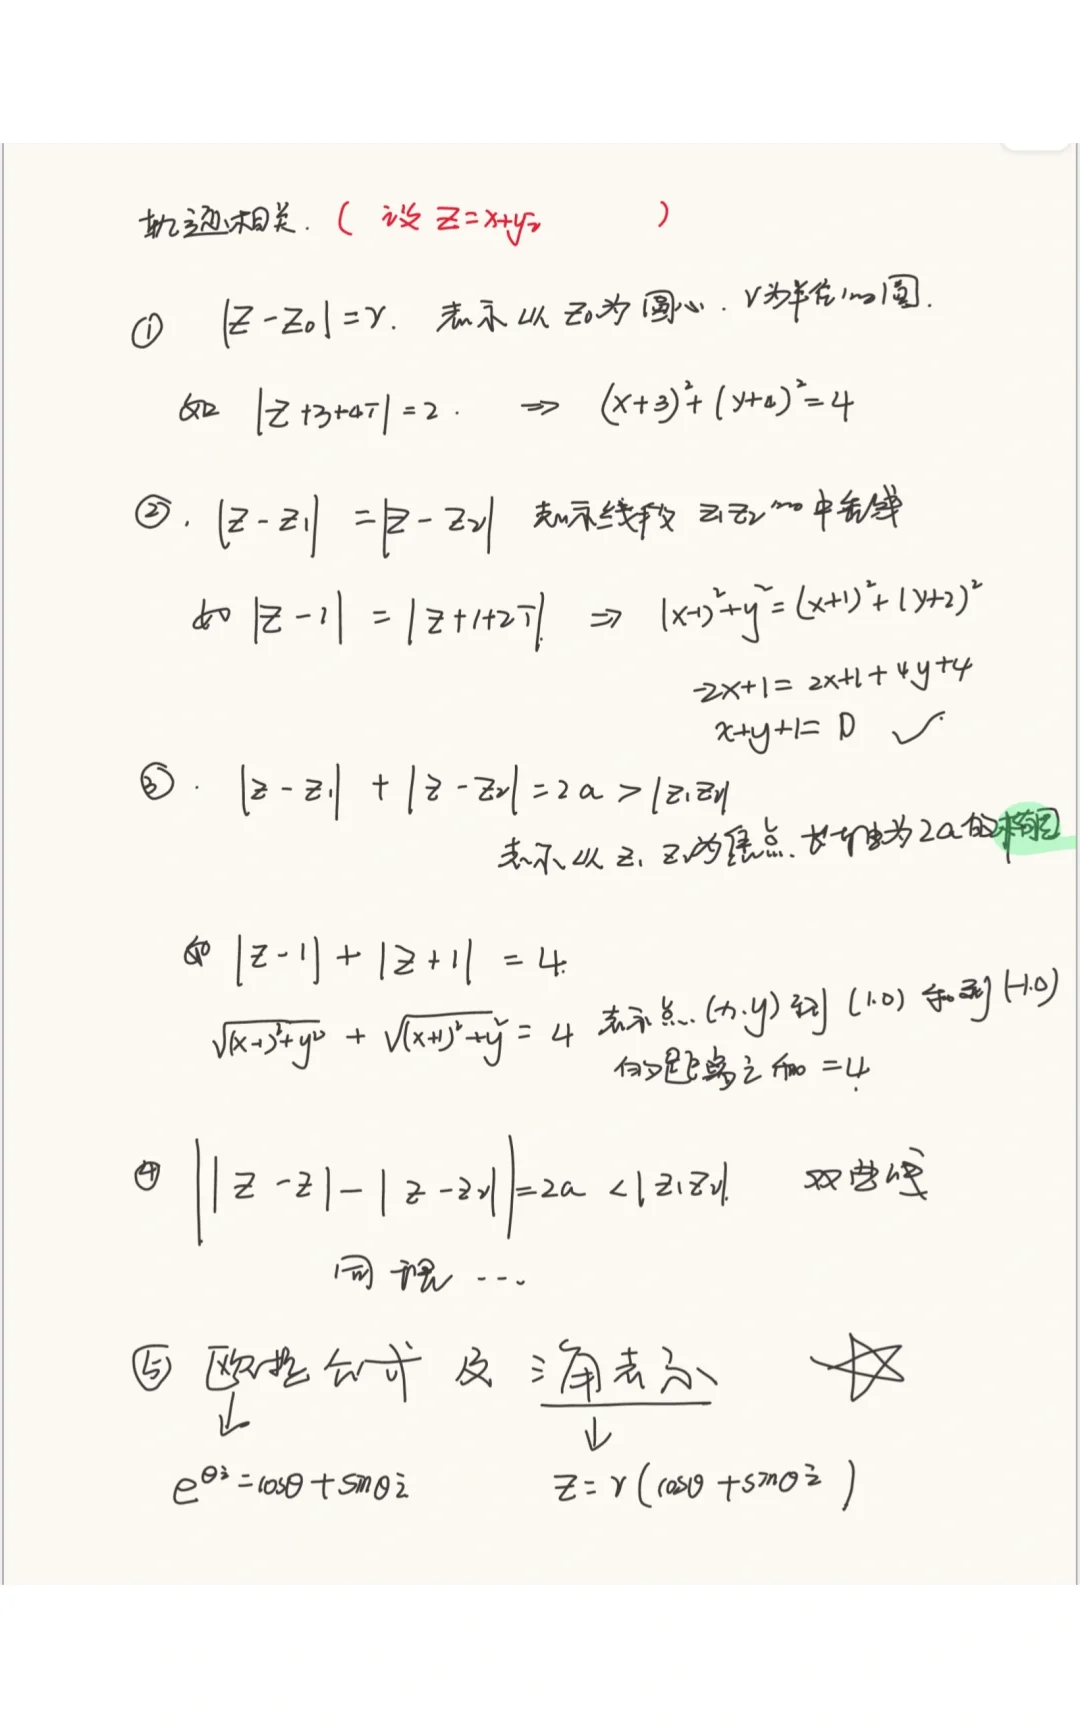 轨迹相关.（设 z=x+yi ）
① |z-z₀|=r. 表示以 z₀为圆心. r为半径的圆.
如 |z+3+4i|=2. ⇒ (x+3)²+(y+4)²=4
②. |z-z₁| =|z-z₂| 表示线段 z₁z₂的中垂线
如 |z-1| = |z+1+2i| ⇒ (x-1)²+y²=(x+1)²+(y+2)²
-2x+1= 2x+1+4y+4
x+y+1=0 ✓
③. |z-z₁| + |z-z₂|=2a>|z₁z₂|
表示以 z₁ z₂为焦点. 长轴为2a的椭圆
如 |z-1|+|z+1| =4.
√(x-1)²+y² + √(x+1)²+y² = 4 表示点.(x.y)到 (1.0) 和到(-1.0)
的距离之和 =4.
④ ||z-z|-|z-z₂||=2a <|z₁z₂|. 双曲线
同理 ...
⑤ 欧拉公式 及 三角表示 ☆
↓ ↓
e^θi=cosθ+sinθi z=r(cosθ+sinθi)